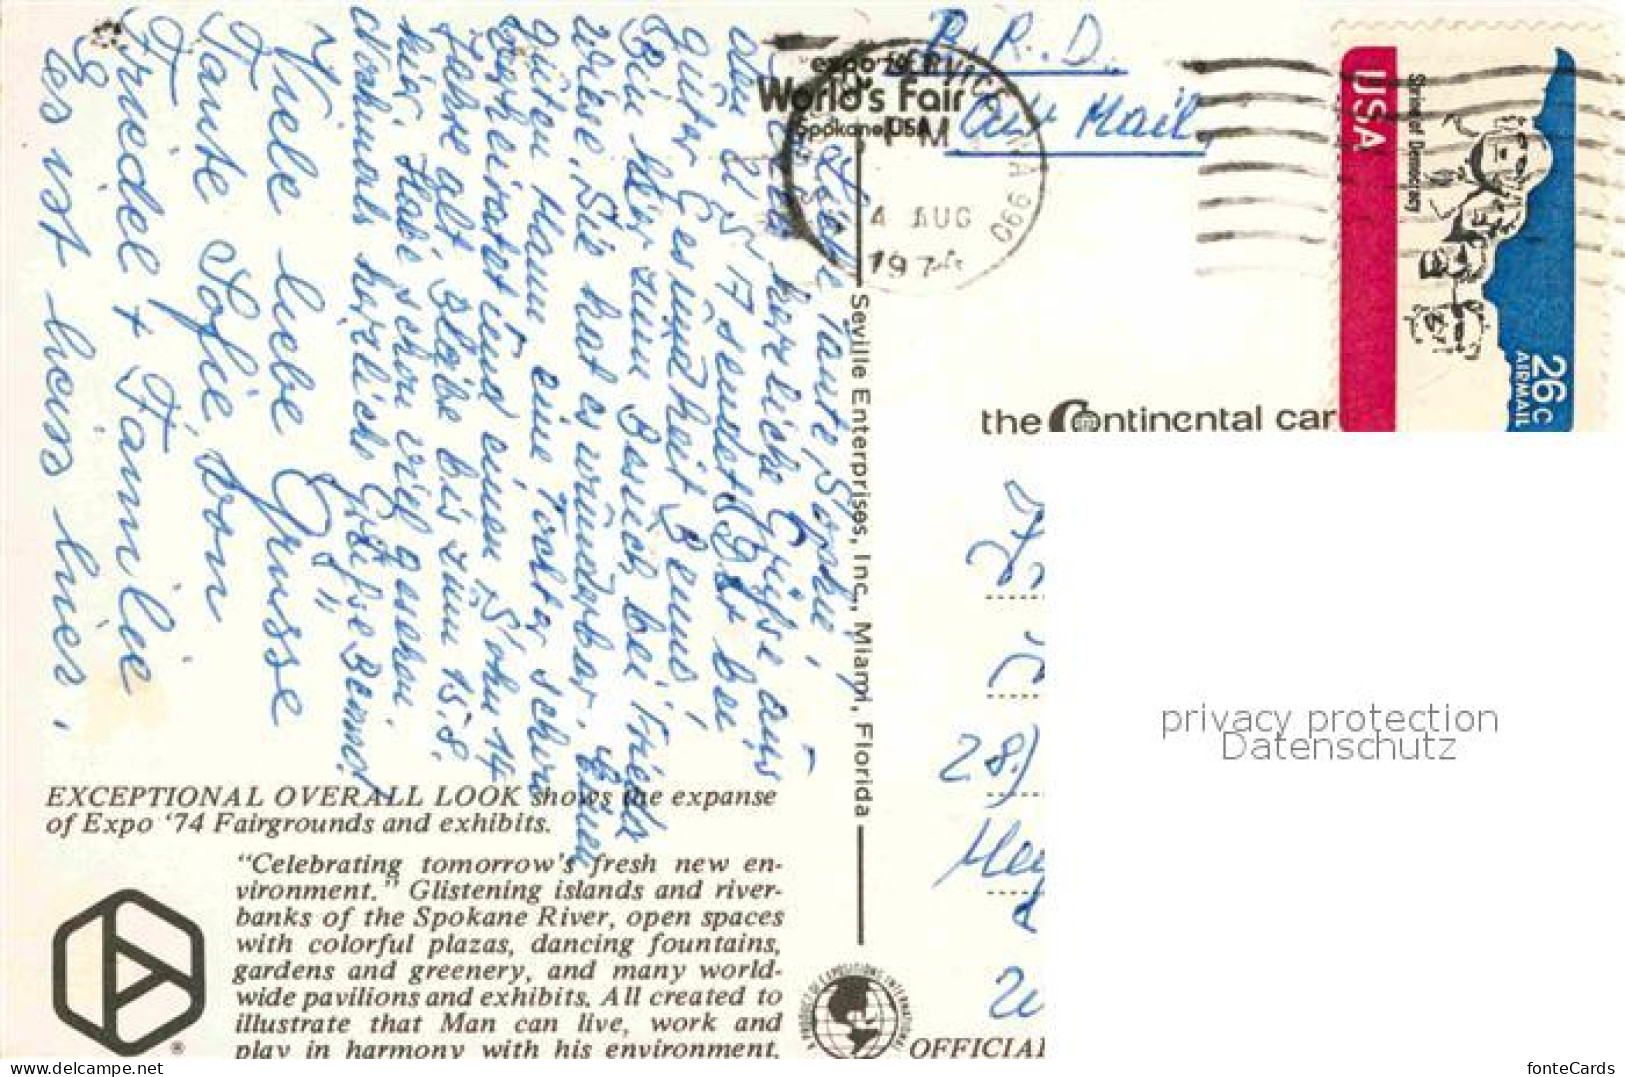 Liebe Tante Sophie,
herzliche Grüsse aus
den U S A sendet Dir bei
guter Gesundheit Benno,
Bin hier zum Besuch bei Frieda
Wiese, Sie hat es wunderbar, einen
guten Mann eine Tochter schon
verheiratet und einen Sohn 14
Jahre alt, bleibe bis zum 15.8.
hier. Habe schon viel gesehen.
Nochmals herzlich Grüsse Benno!
Viele liebe Grüsse
Tante Sofie, von
Friedel + Familie
es ist heiss hier.
EXCEPTIONAL OVERALL LOOK shows the expanse
of Expo '74 Fairgrounds and exhibits.
"Celebrating tomorrow's fresh new en-
vironment." Glistening islands and river-
banks of the Spokane River, open spaces
with colorful plazas, dancing fountains,
gardens and greenery, and many world-
wide pavilions and exhibits. All created to
illustrate that Man can live, work and
play in harmony with his environment.
Seville Enterprises, Inc., Miami, Florida
expo'74
World's Fair
Spokane USA
PM
4 AUG
197
WA 990
B.R.D.
Air Mail
USA
Shrine of Democracy
26c
AIRMAIL
the Continental car
28)
A PRODUCT OF EXPOSITIONS INTERNATIONAL
OFFICIAL
privacy protection
Datenschutz
www.delcampe.net
fonteCards